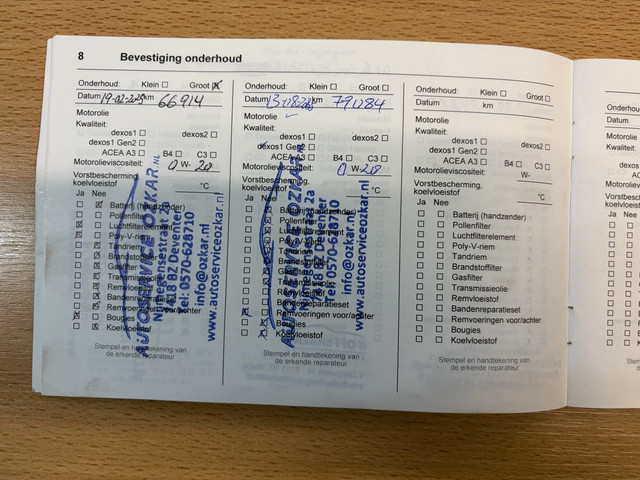 8 Bevestiging onderhoud
Onderhoud: Klein Groot
Datum 19-02-2025 km 66914
Motorolie
Kwaliteit:
dexos1 dexos2
dexos1 Gen2
ACEA A3 B4 C3
Motorolieviscositeit: 0 W- 20
Vorstbescherming,
koelvloeistof °C
Ja Nee
Batterij (handzender)
Pollenfilter
Luchtfilterelement
Poly-V-riem
Tandriem
Brandstoffilter
Gasfilter
Transmissieolie
Remvloeistof
Bandenreparatieset
Remvoeringen voor/achter
Bougies
Koelvloeistof
AUTOSERVICE OZKAR.NL
7418 BZ Deventer
Tel: 0570-628710
info@ozkar.nl
www.autoserviceozkar.nl
Stempel en handtekening van
de erkende reparateur
Onderhoud: Klein Groot
Datum km 79184
Motorolie
Kwaliteit:
dexos1 dexos2
dexos1 Gen2
ACEA A3 B4 C3
Motorolieviscositeit: 0 W- 20
Vorstbescherming,
koelvloeistof °C
Ja Nee
Batterij (handzender)
Pollenfilter
Luchtfilterelement
Poly-V-riem
Tandriem
Brandstoffilter
Gasfilter
Transmissieolie
Remvloeistof
Bandenreparatieset
Remvoeringen voor/achter
Bougies
Koelvloeistof
AUTOSERVICE OZKAR.NL
7418 BZ Deventer
Tel: 0570-628710
info@ozkar.nl
www.autoserviceozkar.nl
Stempel en handtekening van
de erkende reparateur
Onderhoud: Klein Groot
Datum km
Motorolie
Kwaliteit:
dexos1 dexos2
dexos1 Gen2
ACEA A3 B4 C3
Motorolieviscositeit: W-
Vorstbescherming,
koelvloeistof °C
Ja Nee
Batterij (handzender)
Pollenfilter
Luchtfilterelement
Poly-V-riem
Tandriem
Brandstoffilter
Gasfilter
Transmissieolie
Remvloeistof
Bandenreparatieset
Remvoeringen voor/achter
Bougies
Koelvloeistof
Stempel en handtekening van
de erkende reparateur
Onderhoud
Datum
Motorolie
Kwaliteit:
Ja Nee